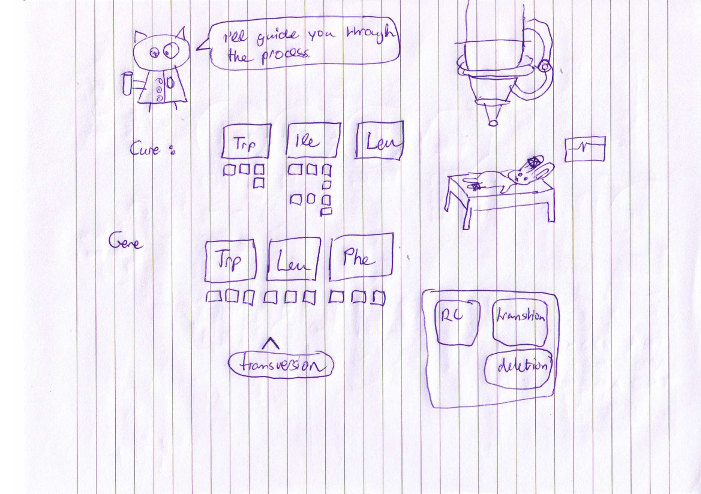 I'll guide you through
the process
Cure :
Trp
Ile
Leu
Gene
Trp
Leu
Phe
transversion
RC
transition
deletion